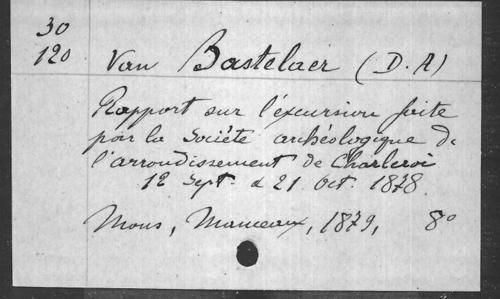 30
120
Van Bastelaer (D. A)
Rapport sur l'éxcursion faite
par la Société archéologique de
l'arrondissement de Charleroi
12 Sept. & 21 Oct. 1878.
Mons, Manceaux, 1879, 8°